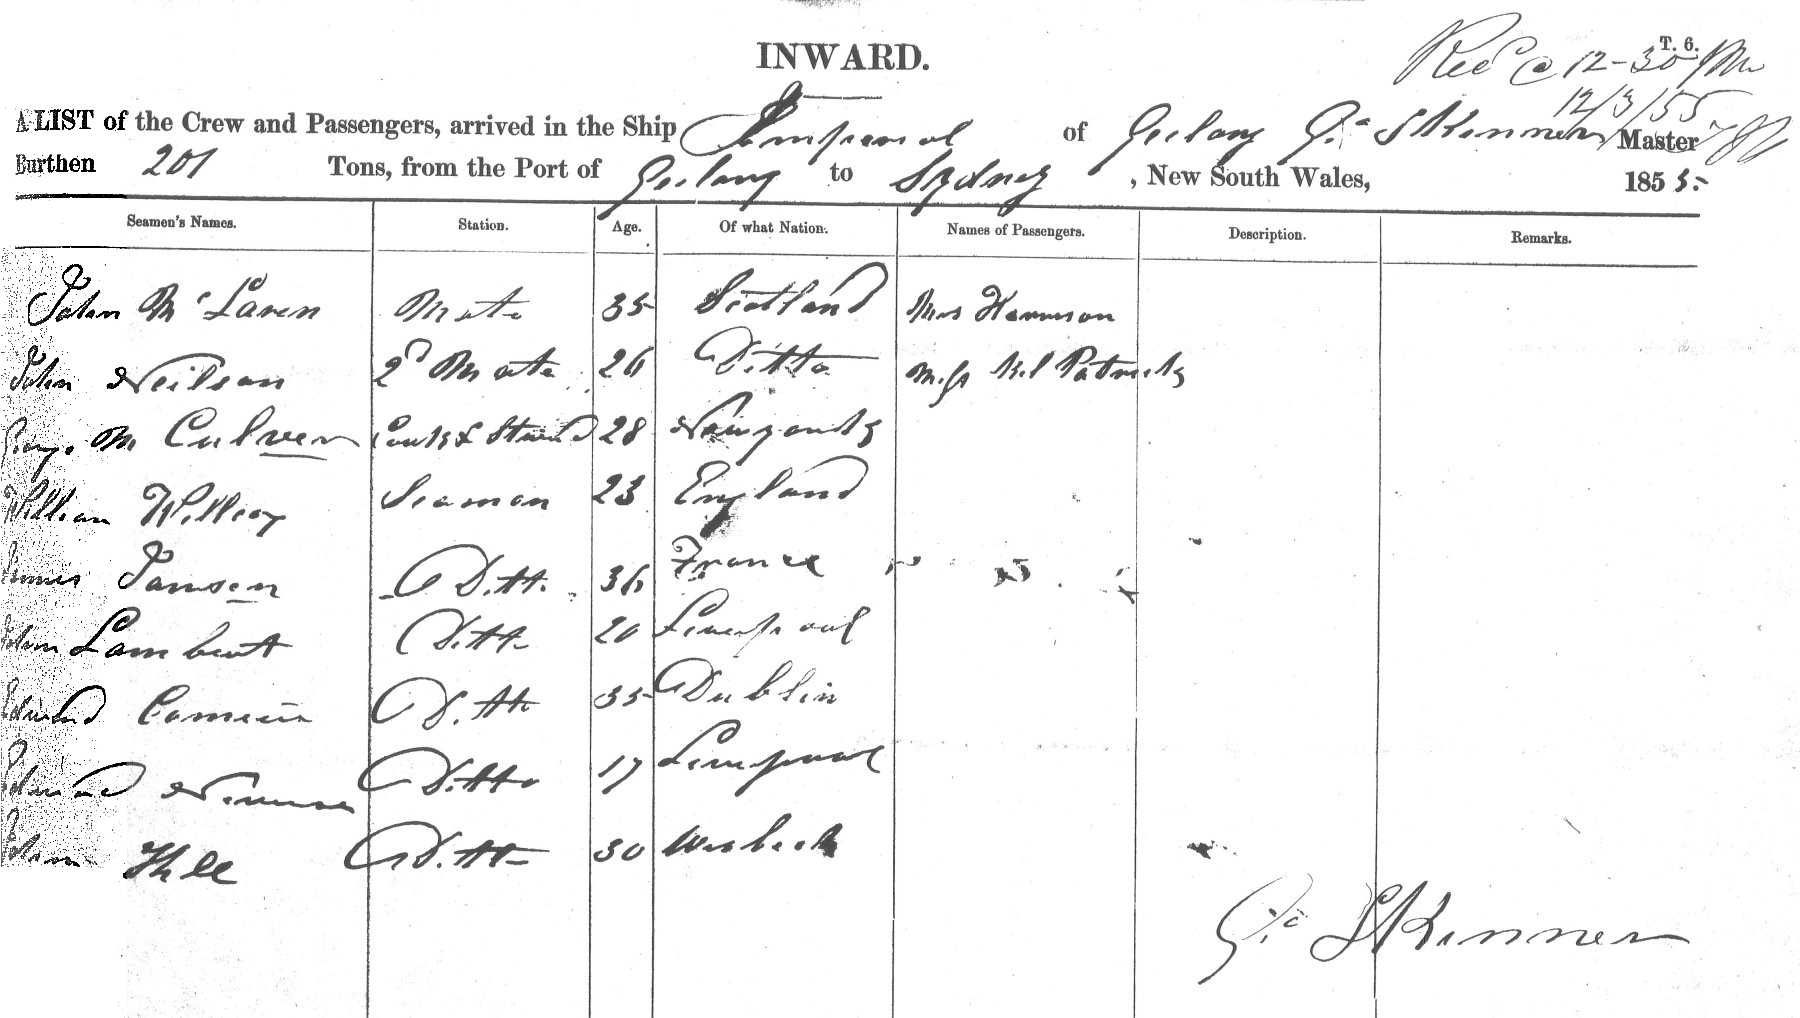 T. 6.
INWARD.
Rec @ 12-30 Pm
12/3/55
A LIST of the Crew and Passengers, arrived in the Ship Imperial of Geelong Geo Skinner Master
Burthen 201 Tons, from the Port of Geelong to Sydney, New South Wales, 1855.
Seamen's Names. Station. Age. Of what Nation. Names of Passengers. Description. Remarks.
John McLaren Mate 35 Scotland Mrs Harrison
John Neilson 2d Mate 26 Ditto Miss Kil Patrick
George M Culver Cook & Steward 28
William Seaman 23 England
Jansen Ditto 36 France
John Lambert Ditto 20 Liverpool
Edward Ditto 35 Dublin
Edward Ditto 17 Liverpool
John Ditto 30
Geo Skinner